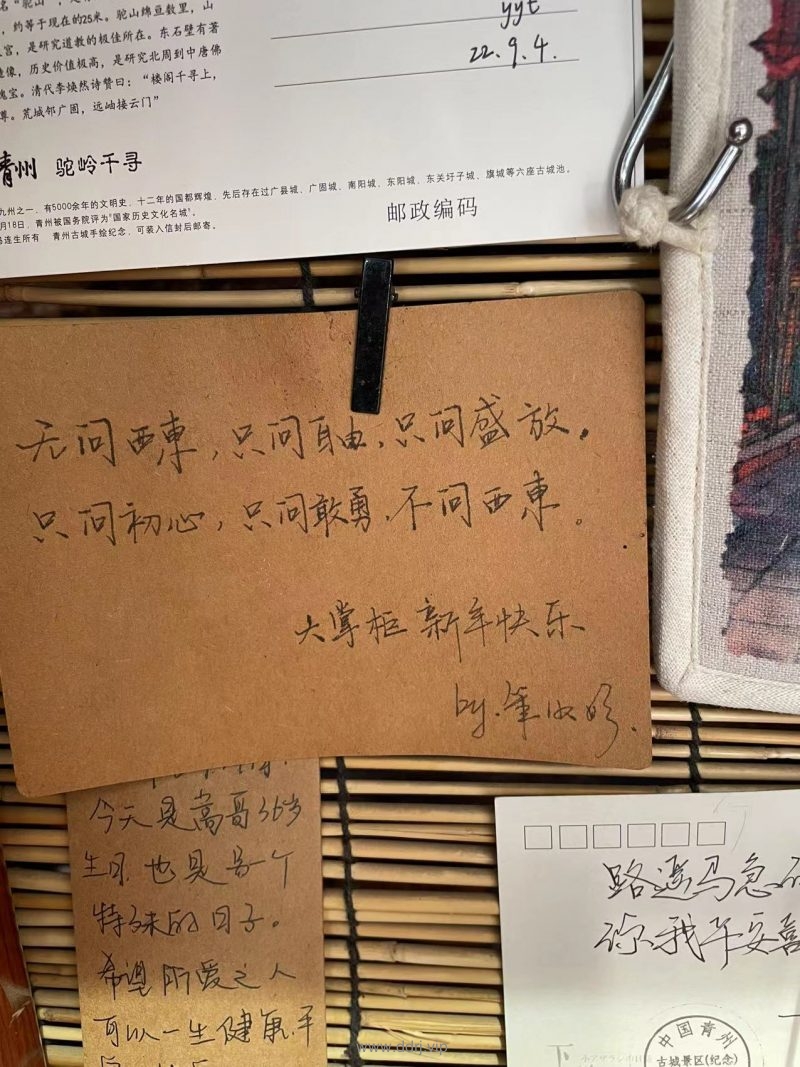 名“驼山”，
，约等于现在的25米。驼山绵亘数里，山
宫，是研究道教的极佳所在。东石壁有著
造像，历史价值极高，是研究北周到中唐佛
瑰宝。清代李焕然诗赞曰：“楼阁千寻上，
尊。荒城邻广固，远岫接云门”
yyt
22.9.4.
青州 驼岭千寻
九州之一，有5000余年的文明史，十二年的国都辉煌，先后存在过广县城、广固城、南阳城、东阳城、东关圩子城、旗城等六座古城池。
月18日，青州被国务院评为“国家历史文化名城”。
马连生所有 青州古城手绘纪念，可装入信封后邮寄。
邮政编码
无问西東，只问自由，只问盛放。
只问初心，只问敢勇，不问西東。
大掌柜 新年快乐
by.
今天是高哥36岁
生日，也是另一个
特殊的日子。
希望所爱之人
可以一生健康平
路遥马急
你我平安喜
中国青州
古城景区(纪念)
www.ddrj.vip